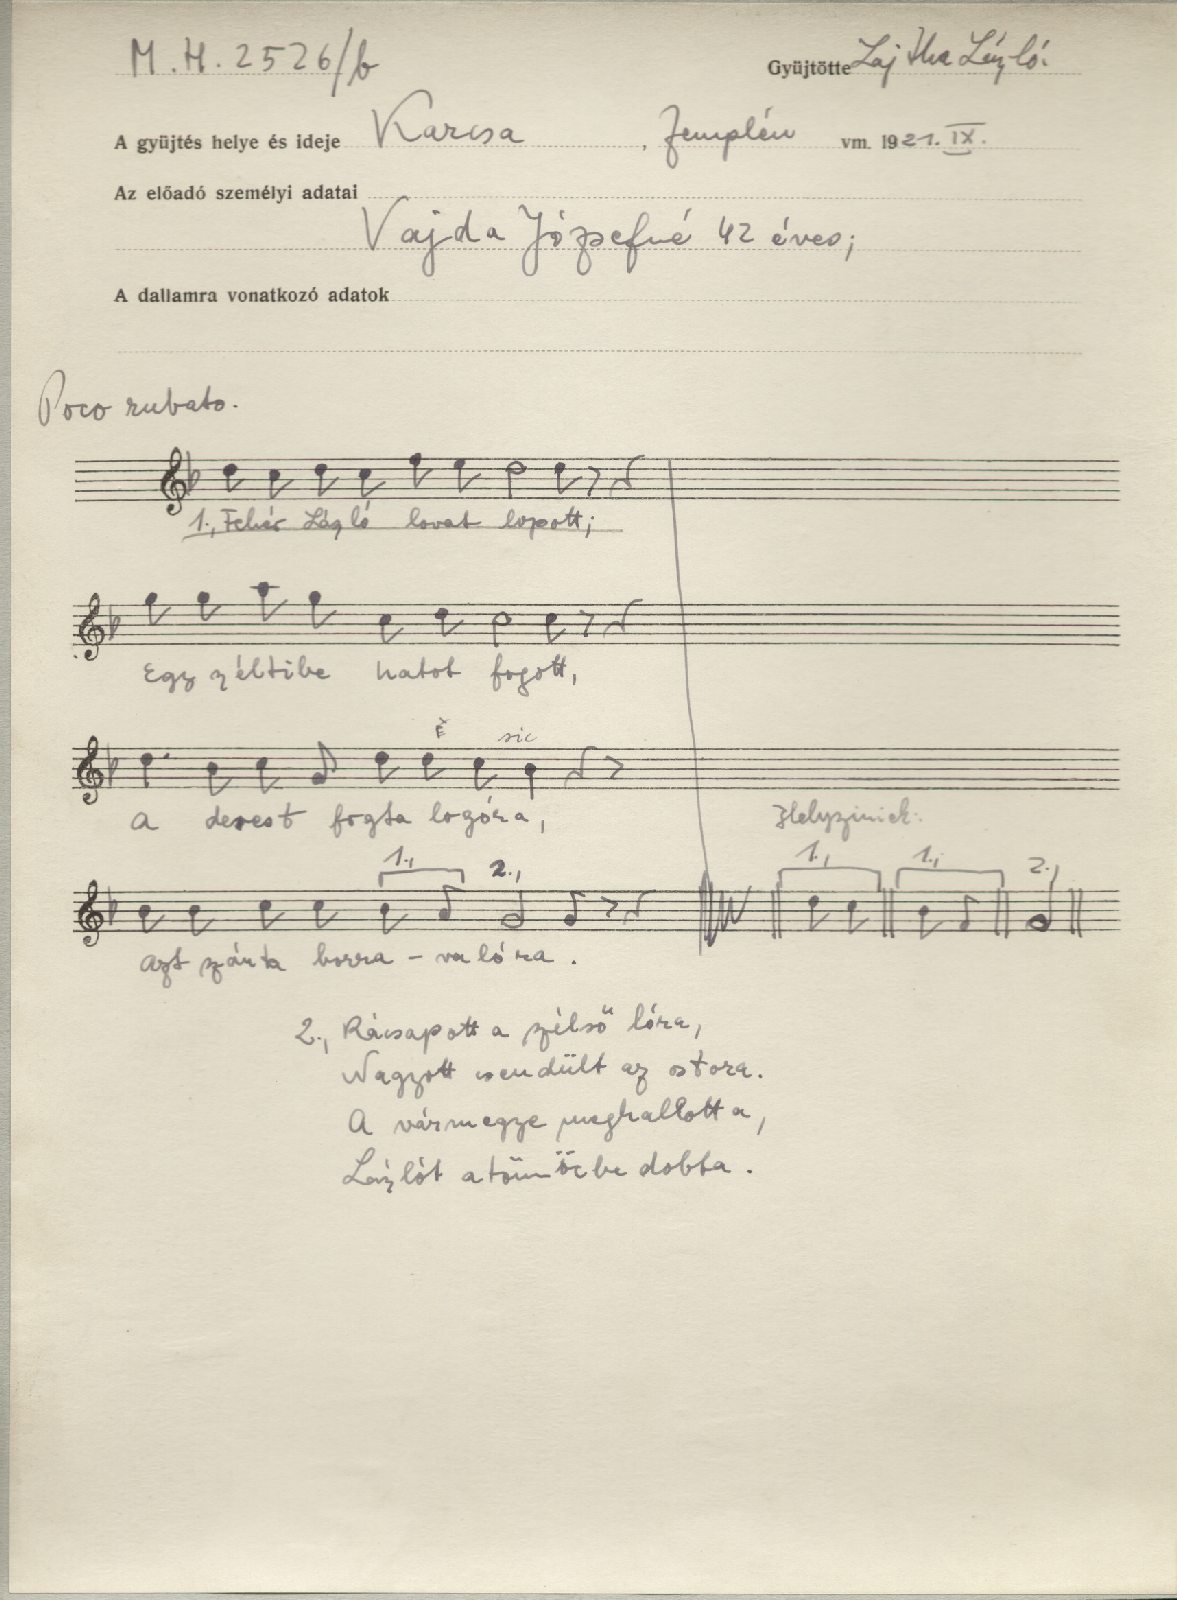 M.H. 2526/b
Gyüjtötte Lajtha László.
A gyüjtés helye és ideje Karcsa, Zemplén vm. 1921. IX.
Az előadó személyi adatai
Vajda Józsefné 42 éves;
A dallamra vonatkozó adatok
Poco rubato.
1., Fehér László lovat lopott;
Egy zéltibe hatot fogott,
sic
A derest fogta logóra,
Helyszíniek:
1., 2., 1., 1., 2.,
Azt szánta borra - valóra.
2., Rácsapott a szélső lóra,
Nagyott csendült az ostora.
A vármegye meghallotta,
Lázlót a tömlöcbe dobta.